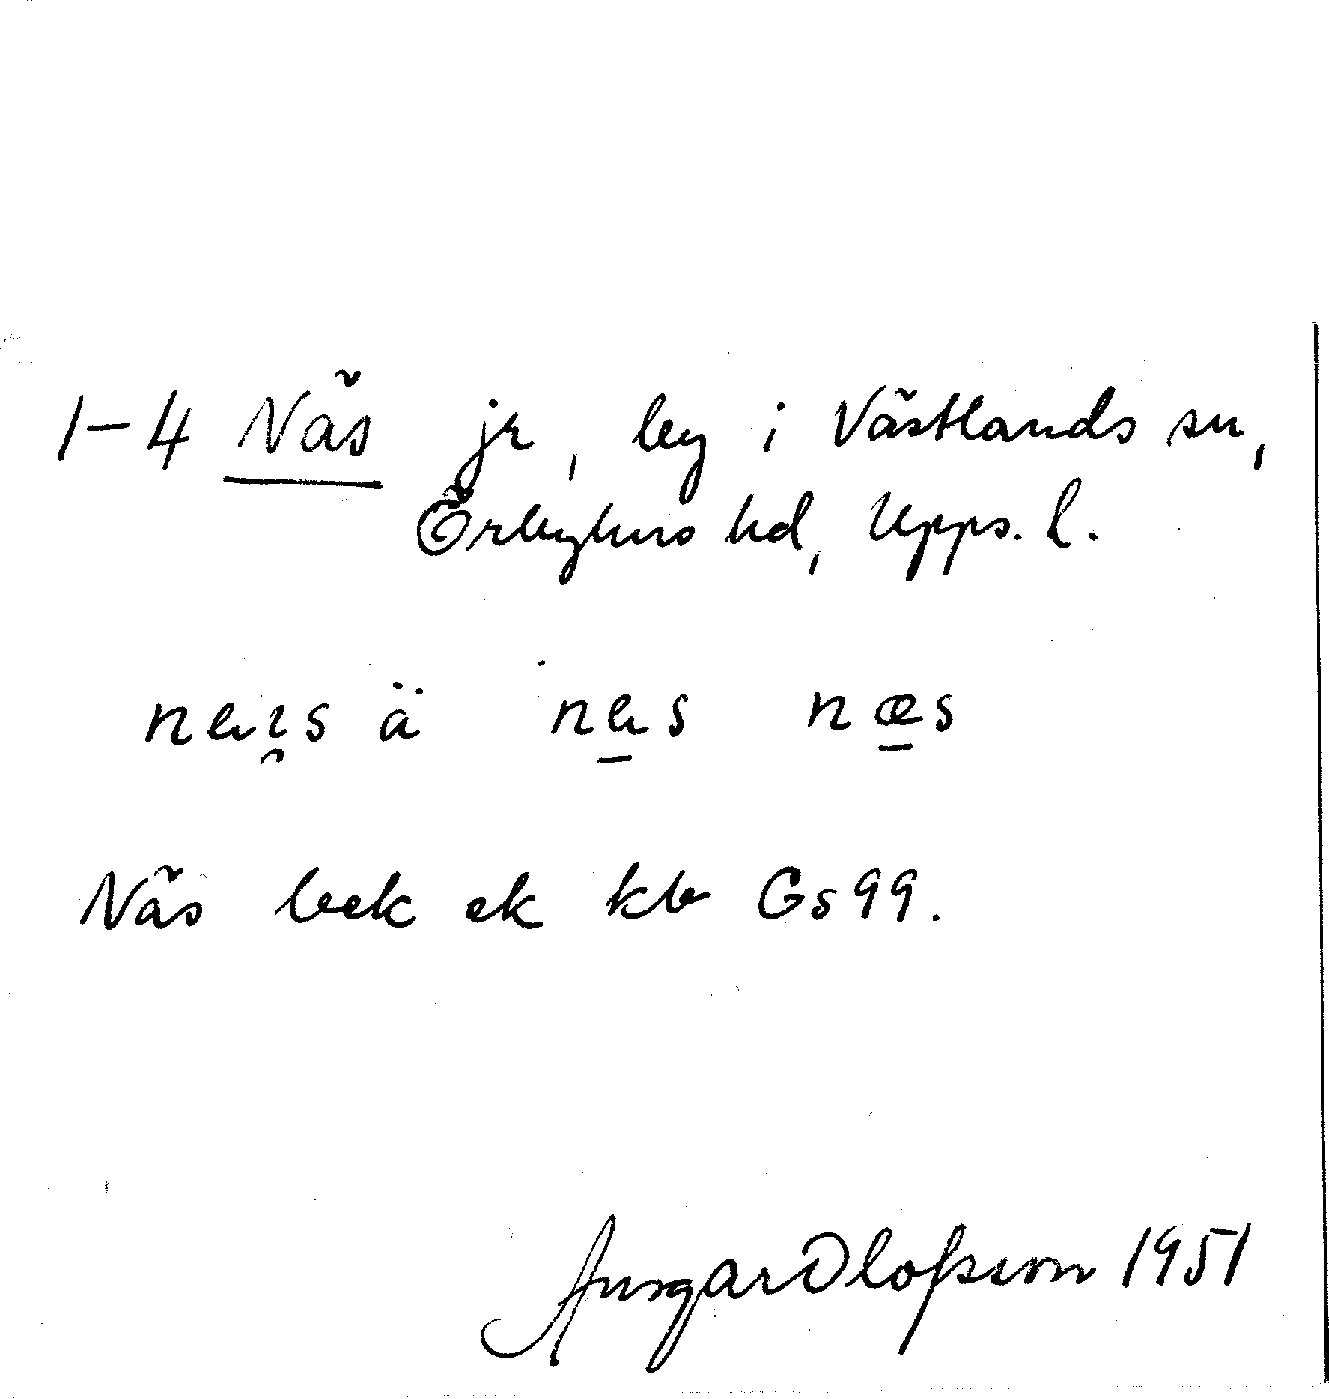 1-4 Näs jr, by i Västlands sn,
Örbyhus hd, Upps. l.
ä næs
Näs bek ek kb Gs 99.
Ansgar Olofsson 1951